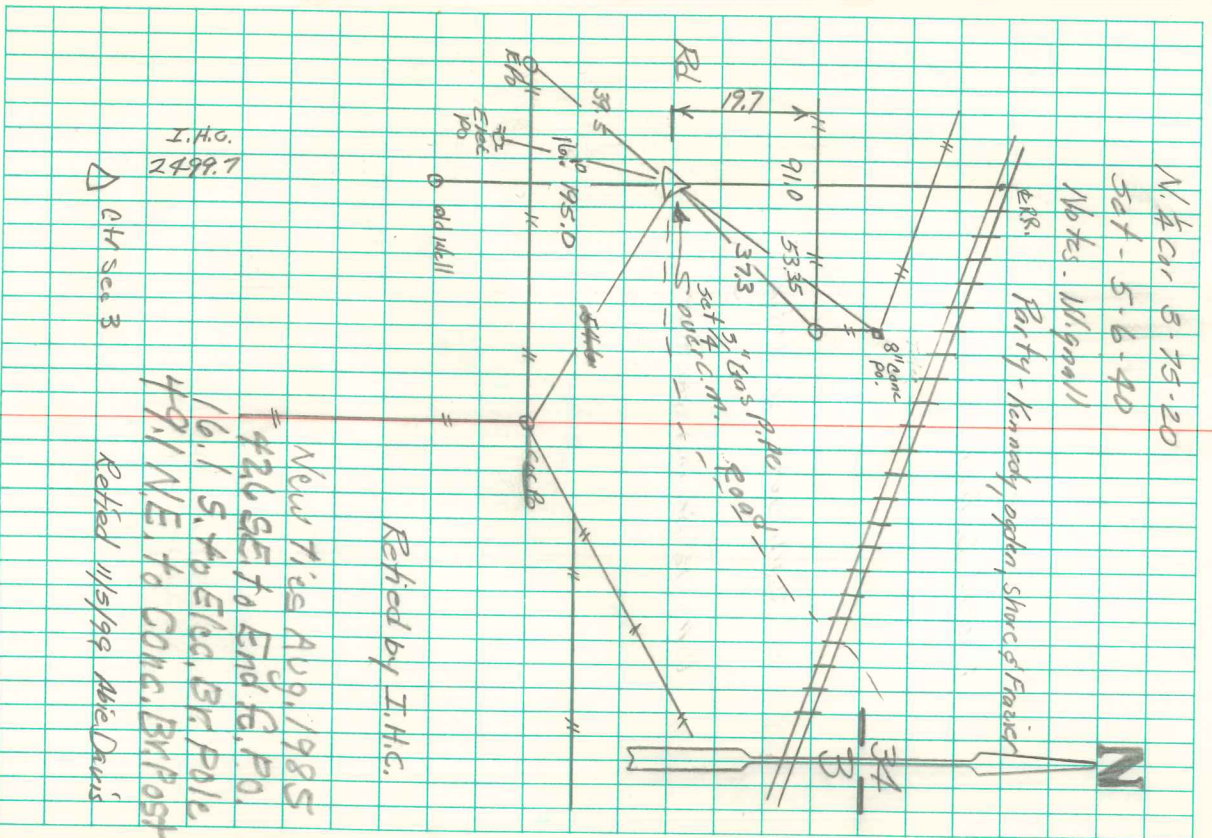 N. 1/4 Cor 3-75-20
Set - 5-6-40
Notes - Wignall
Party - Kennedy, Ogden, Short & Frazier
N
34
3
℄ R.R.
8" Conc
po.
91.0
53.35
37.3
19.7
Rd
set 3/4" Gas Pipe
5' over C.M.
Road
39.5
16.10
195.0
E Po
Elec
po
old well
Cor Po
I.H.C.
2499.7
△ Ctr Sec 3
Retied by I.H.C.
New Ties Aug. 1985
42.6 SE to End fc. Po.
16.1 S. to Elec. Br. Pole
49.1 N.E. to Conc. Br. Post
Retied 11/5/99 Abie Davis